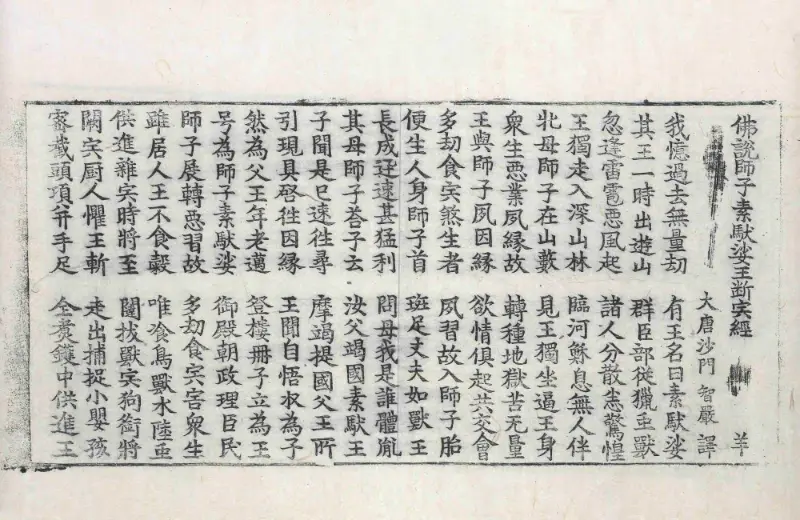 佛說師子素馱娑王断宍經 羊
大唐沙門 智嚴 譯
我憶過去無量劫 有王名曰素馱娑
其王一時出遊山 群臣部從獵䖝獸
忽逢雷雹悪風起 諸人分散恚驚惶
王獨走入深山林 臨河穌息無人伴
牝母師子在山藪 見王獨坐逼王身
衆生悪業夙縁故 轉種地獄苦无量
王與師子夙因縁 欲情俱起共交會
多劫食宍煞生者 夙習故入師子胎
便生人身師子首 班足丈夫如獸王
長成迅速甚猛利 問母我是誰體胤
其母師子荅子云 汝父竭國素馱王
子聞是已速往尋 摩竭提國父王所
引現具啓往因縁 王聞自悟收為子
然為父王年老邁 登樓冊子立為王
号為師子素馱娑 御殿朝政理臣民
師子展轉悪習故 多劫食宍害衆生
雖居人王不食穀 唯飡鳥獸水陸䖝
供進雜宍時將至 闇拔獸宍狗銜將
闕宍厨人懼王斬 走出捕捉小嬰孩
密截頭項并手足 全煑鑊中供進王